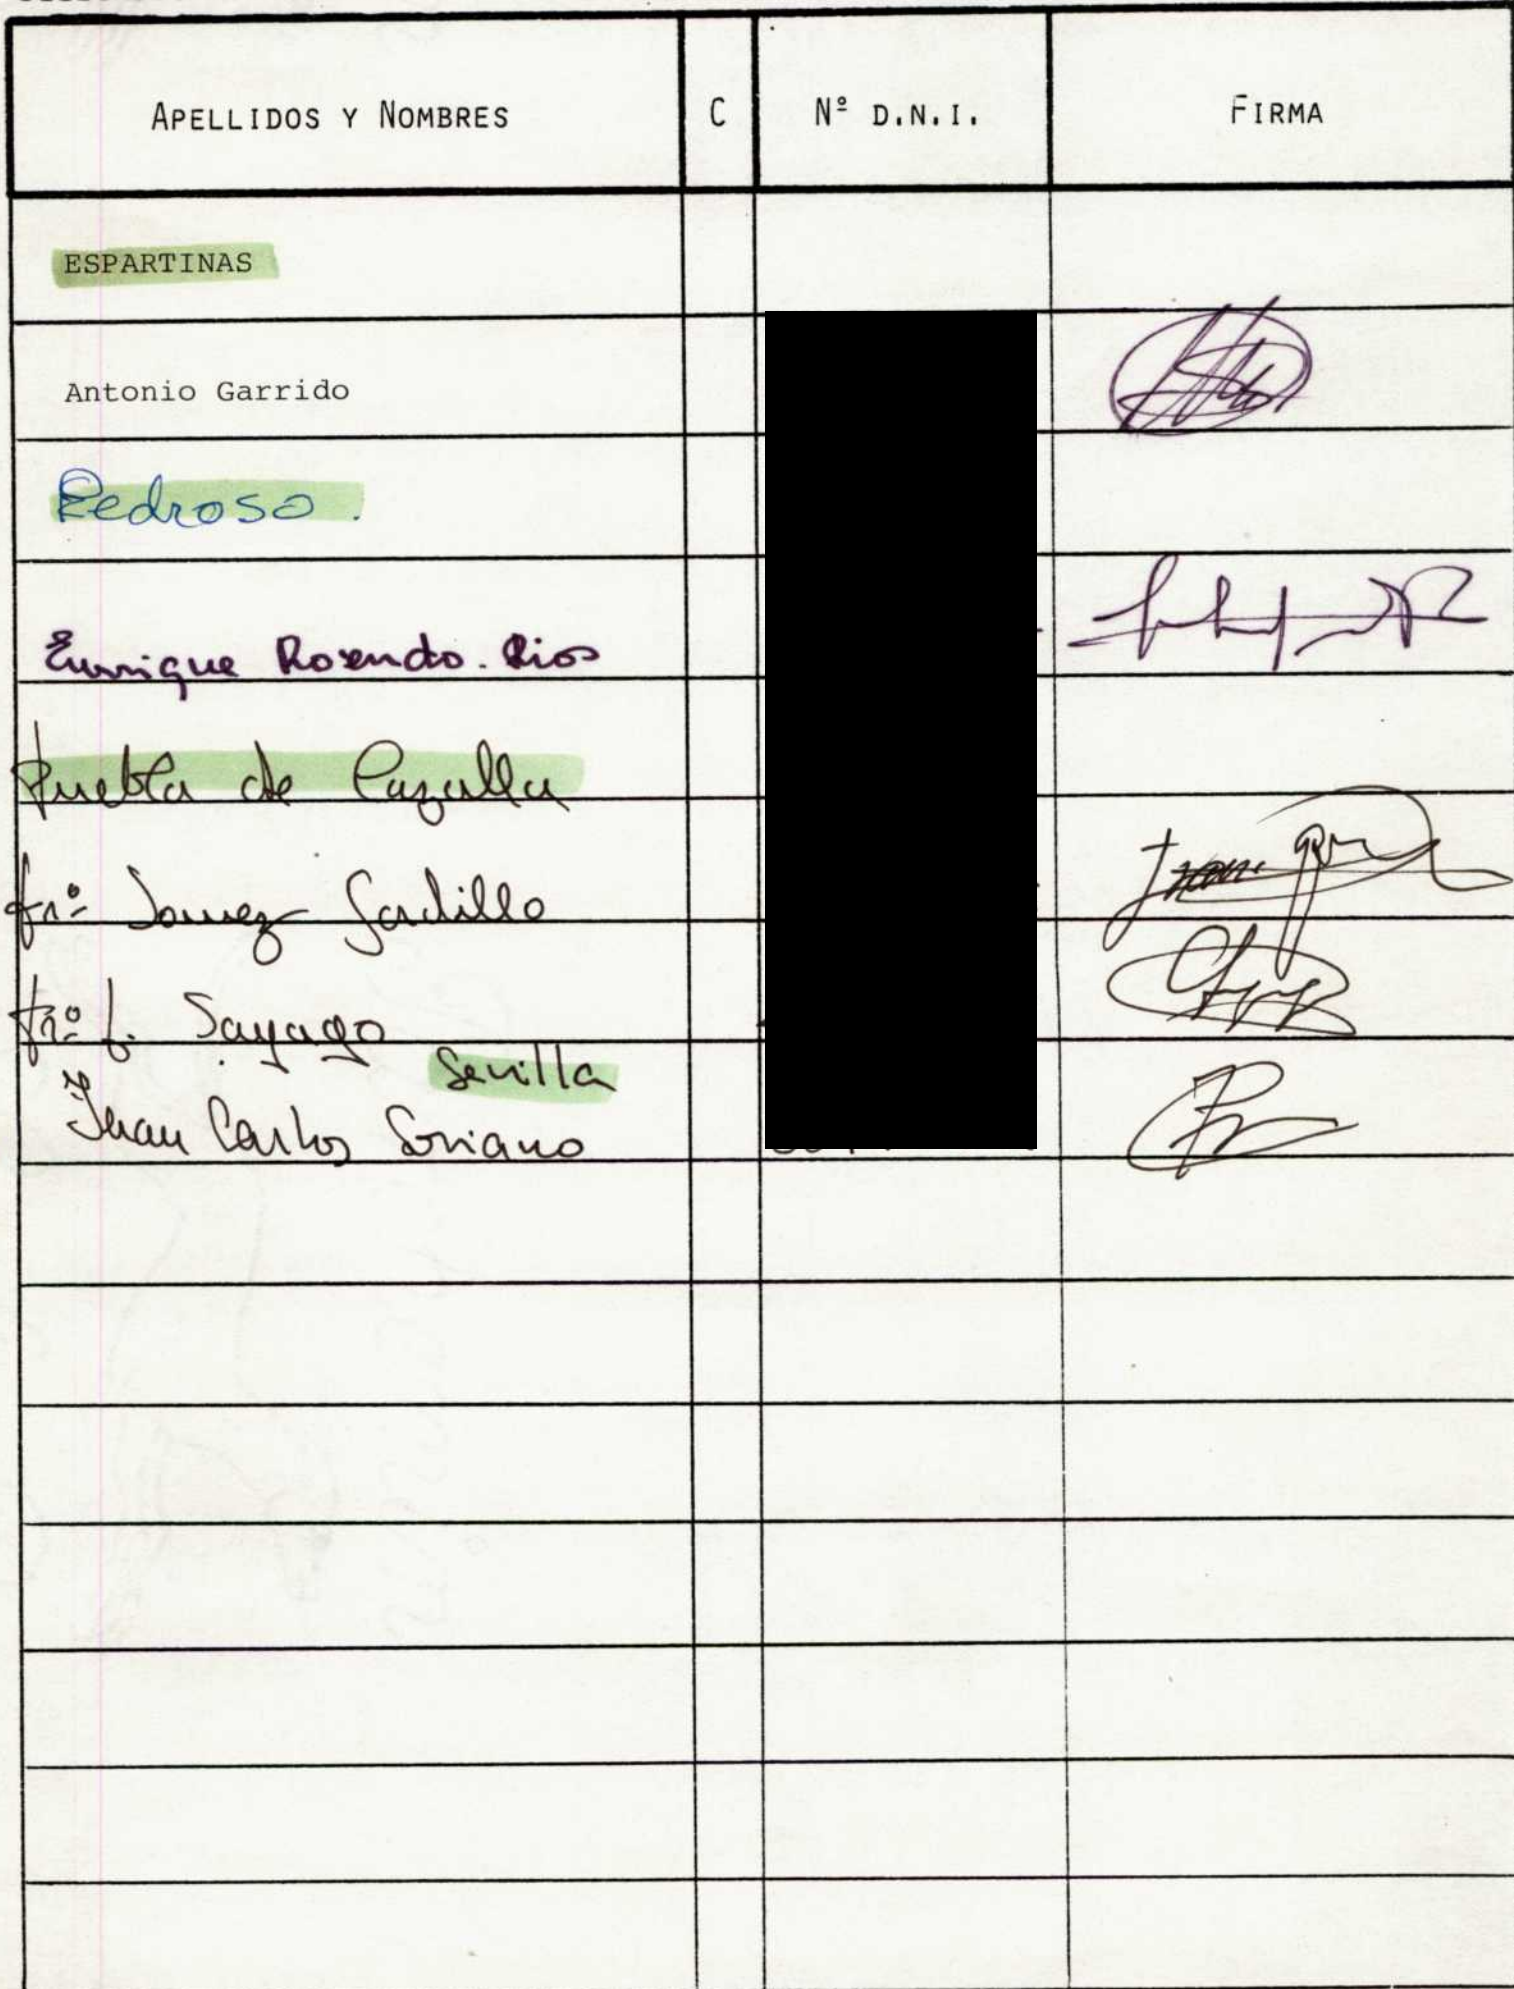 APELLIDOS Y NOMBRES C Nº D.N.I. FIRMA
ESPARTINAS
Antonio Garrido
Pedroso.
Enrique Rosendo. Rios
Puebla de Cazalla
Frº Gomez Gordillo
Frº J. Sayago
Sevilla
Juan Carlos Soriano